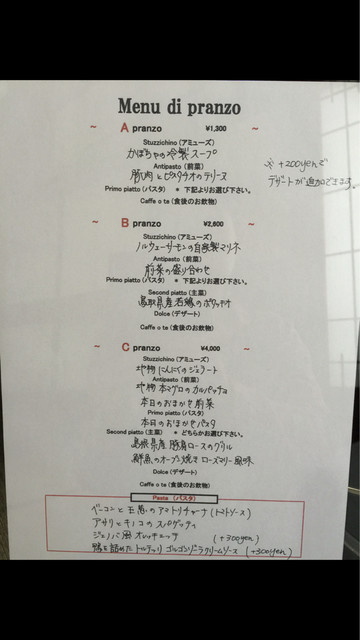 Menu di pranzo
~ A pranzo ¥1,300 ~
Stuzzichino (アミューズ)
かぼちゃの冷製スープ
Antipasto (前菜)
豚肉とピスタチオのテリーヌ
Primo piatto (パスタ) * 下記よりお選び下さい。
Caffe o te (食後のお飲物)
※ +200yenで
デザートが追加できます。
~ B pranzo ¥2,600 ~
Stuzzichino (アミューズ)
ノルウェーサーモンの自家製マリネ
Antipasto (前菜)
前菜の盛り合わせ
Primo piatto (パスタ) * 下記よりお選び下さい。
Second piatto (主菜)
鳥取県産若鶏のポタッチオ
Dolce (デザート)
Caffe o te (食後のお飲物)
~ C pranzo ¥4,000 ~
Stuzzichino (アミューズ)
地物にんにくのジェラート
Antipasto (前菜)
地物本マグロのカルパッチョ
本日のおまかせ前菜
Primo piatto (パスタ)
本日のおまかせパスタ
Second piatto (主菜) * どちらかお選び下さい。
島根県産豚肩ロースのグリル
鮮魚のオーブン焼き ローズマリー風味
Dolce (デザート)
Caffe o te (食後のお飲物)
Pasta (パスタ)
ベーコンと玉葱のアマトリチャーナ (トマトソース)
アサリとキノコのスパゲッティ
ジェノバ風オレッキエッテ (+300yen)
鴨を詰めたトルテッリ ゴルゴンゾーラクリームソース (+300yen)